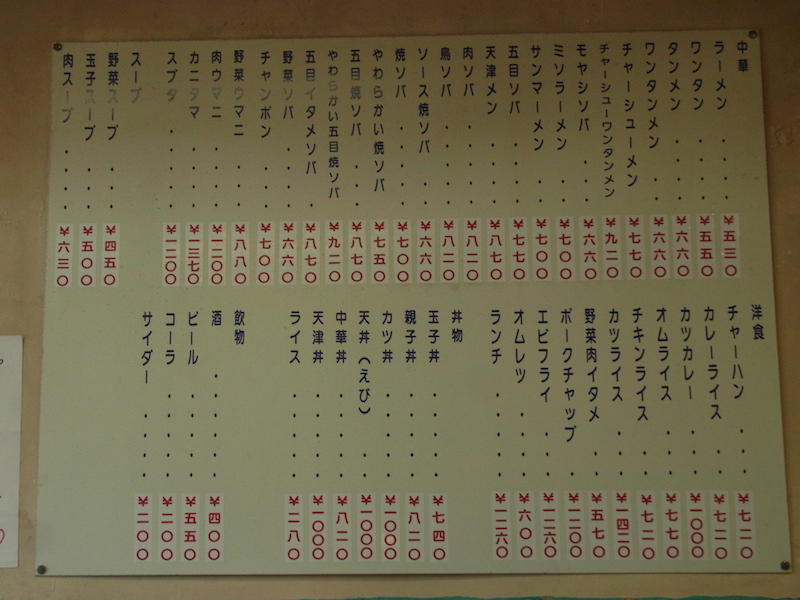 中華
ラーメン ・・・・ ¥五三〇
ワンタン ・・・・ ¥五五〇
タンメン ・・・・ ¥六六〇
ワンタンメン ・・ ¥六六〇
チャーシューメン ¥七七〇
チャーシューワンタンメン ¥九二〇
モヤシソバ ・・・ ¥六六〇
ミソラーメン ・・ ¥七〇〇
サンマーメン ・・ ¥七〇〇
五目ソバ ・・・・ ¥七七〇
天津メン ・・・・ ¥八七〇
肉ソバ ・・・・・ ¥八二〇
鳥ソバ ・・・・・ ¥八二〇
ソース焼ソバ ・・ ¥六六〇
焼ソバ ・・・・・ ¥七〇〇
やわらかい焼ソバ ¥七五〇
五目焼ソバ ・・・ ¥八七〇
やわらかい五目焼ソバ ¥九二〇
五目イタメソバ ・ ¥八七〇
野菜ソバ ・・・・ ¥六六〇
チャンポン ・・・ ¥七〇〇
野菜ウマニ ・・・ ¥八八〇
肉ウマニ ・・・・ ¥一二〇〇
カニタマ ・・・・ ¥一三七〇
スブタ ・・・・・ ¥一二〇〇
スープ
野菜スープ ・・・ ¥四五〇
玉子スープ ・・・ ¥五〇〇
肉スープ ・・・・ ¥六三〇
洋食
チャーハン ・・・ ¥七二〇
カレーライス ・・ ¥七二〇
カツカレー ・・・ ¥一〇〇〇
オムライス ・・・ ¥七七〇
チキンライス ・・ ¥七二〇
カツライス ・・・ ¥一四二〇
野菜肉イタメ ・・ ¥五七〇
ポークチャップ ・ ¥一二〇〇
エビフライ ・・・ ¥一二六〇
オムレツ ・・・・ ¥六〇〇
ランチ ・・・・・ ¥一二六〇
丼物
玉子丼 ・・・・・ ¥七四〇
親子丼 ・・・・・ ¥八二〇
カツ丼 ・・・・・ ¥一〇〇〇
天丼(えび) ・・ ¥一〇〇〇
中華丼 ・・・・・ ¥八二〇
天津丼 ・・・・・ ¥一〇〇〇
ライス ・・・・・ ¥二八〇
飲物
酒 ・・・・・・ ¥四〇〇
ビール ・・・・・ ¥五五〇
コーラ ・・・・・ ¥二〇〇
サイダー ・・・・ ¥二〇〇